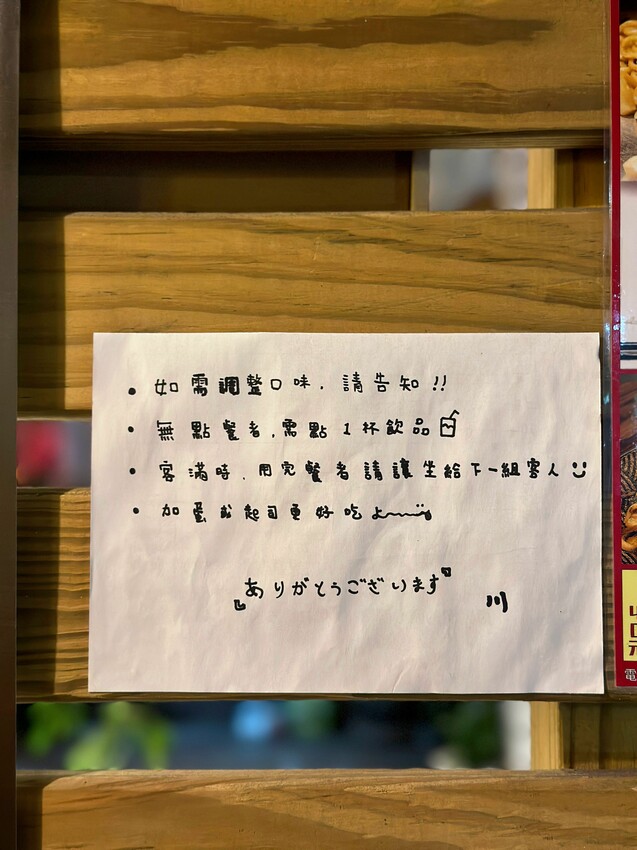 • 如需調整口味，請告知!!
• 無點餐者，需點1杯飲品
• 客滿時，用完餐者請讓坐給下一組客人
• 加蛋或起司更好吃よ~
『ありがとうございます』
川
元
電